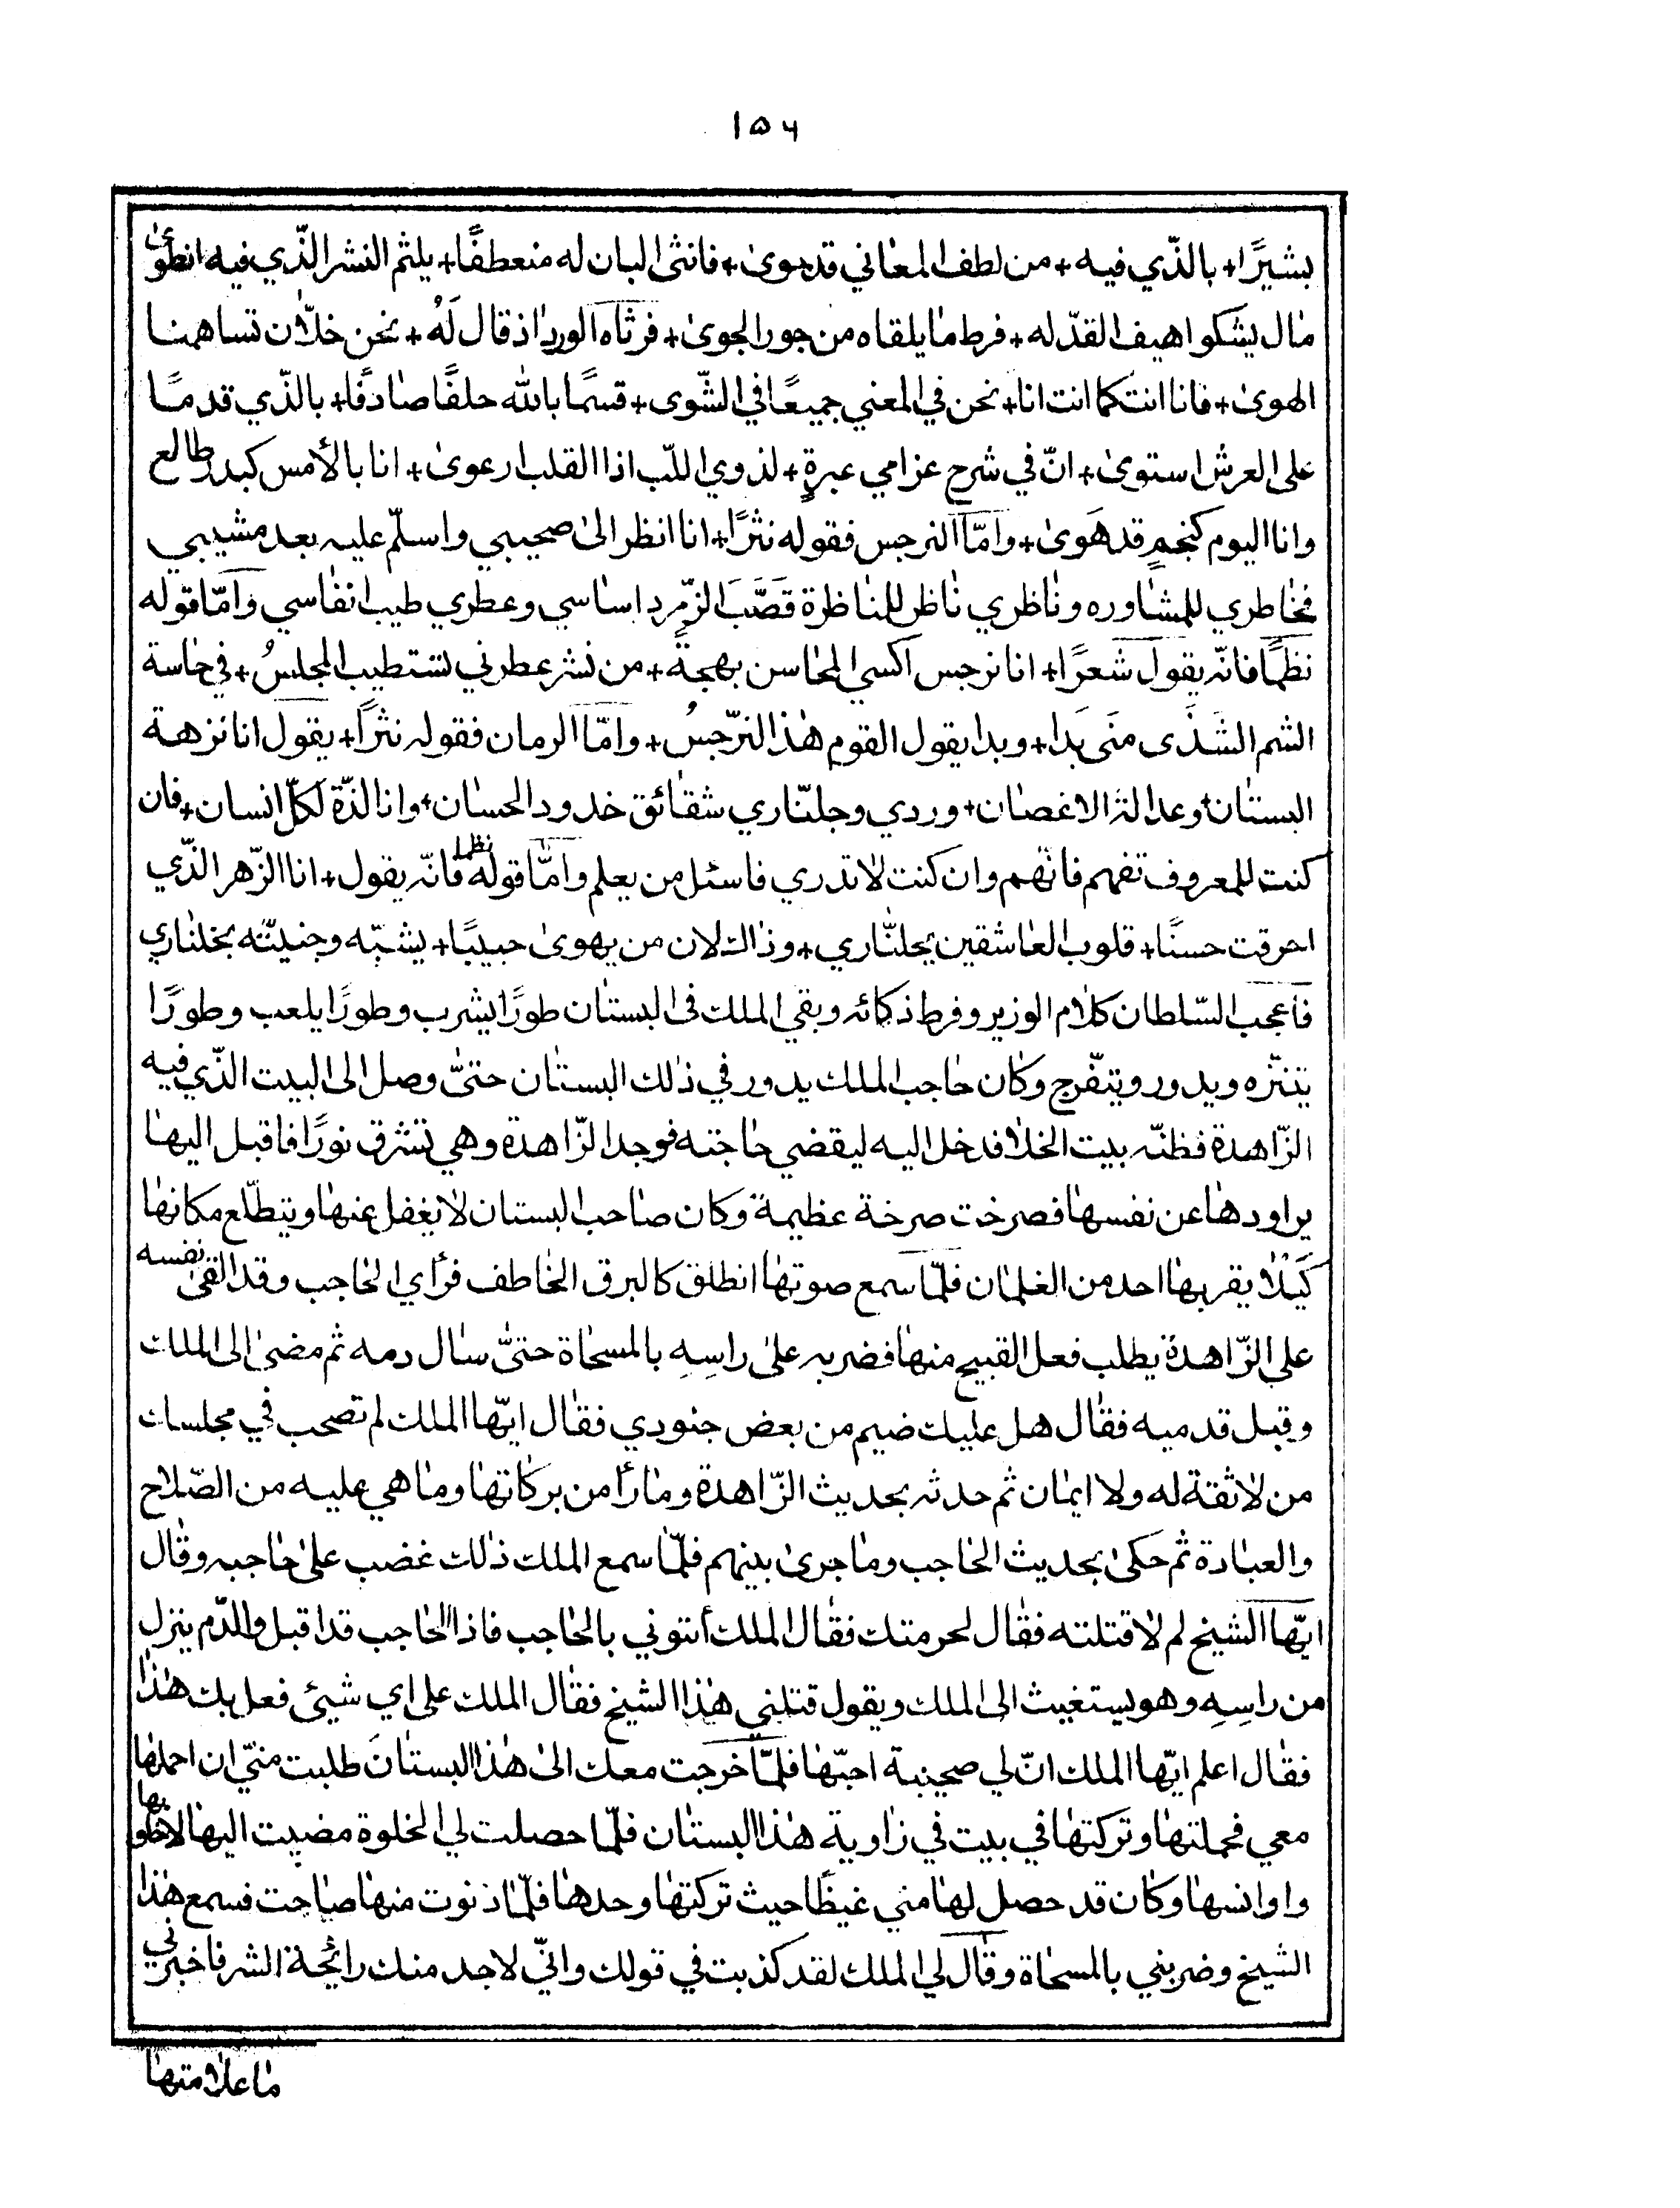 ١٥٦
بشيرًا + بالذّي فيه + من لطف المعاني قد هوىٰ + فانثى البان له منعطفًا + يلثم النشر الذّي فيه انطوىٰ
مال يشكوا هيف القدّ له + فرط ما يلقاه من جور الجوىٰ + فرثاه الورد اذ قال لَهُ + نحن خلّان تساهمنا
الهوىٰ + فانا انت كما انت انا + نحن في المعني جميعًا في الشّوى + قسمًا بالله حلفًا صادقًا + بالذّي قدمًا
على العرش استوىٰ + انّ في شرح غرامي عبرةٍ + لذوي اللبّ اذا القلب ارعوىٰ + انا بالأمس كبدر طالع
وانا اليوم كنجمٍ قد هَوىٰ + وامّا النرجس فقوله نثرًا + انا انظر الىٰ صحيبي واسلّم عليه بعد مشيبي
فخاطري للمشاوره وناظري ناظر للمناظرة قَصَبَ الزّمرد اساسي وعطري طيب انفاسي وامّا قوله
نظمًا فانّه يقول شعرًا + انا نرجس اكسي المحاسن بهجةً + من نشر عطرني تستطيب المجلسُ + في حاسة
الشم الشَذَى منَى بَدا + وبدا يقول القوم هٰذا النرّجسُ + وامّا الرمان فقوله نثرًا + يقول انا نزهة
البستان + وعدالة الاغصان + وردي وجلنّاري شقائق خدود الحسان + وانا لذّة لكلّ انسان + فان
كنت للمعروف تفهم فانهم وان كنت لا تدري فاسئل من يعلم وامّا قوله نظما فانّه يقول + انا الزّهر الذّي
احرقت حسنًا + قلوب العاشقين بجلنّاري + وذالك لان من يهوىٰ حبيبًا + يشبّه وجنيتّه بخلناري
فاعجب السّلطان كلام الوزير وفرط ذكائه وبقي الملك في البستان طورًا يشرب وطورًا يلعب وطورًا
يتنزّه ويدور ويتفّرج وكان حاجب الملك يدور في ذلك البستان حتىّٰ وصل الى البيت الذّي فيه
الزّاهدة فظنّه بيت الخلا فدخل اليه ليقضي حاجته فوجد الزّاهدة وهي تشرق نورًا فاقبل اليها
يراودها عن نفسها فصرخت صرخة عظيمة وكان صاحب البستان لا يغفل عنها ويتطلّع مكانها
كَيْلا يقربها احد من الغلمان فلمّا سمع صوتها انطلق كالبرق الخاطف فرأي الحاجب وقد القىٰ نفسه
على الزّاهدة يطلب فعل القبيح منها فضربه علىٰ راسِهِ بالمسحاة حتىّٰ سال دمه ثم مضىٰ الى الملك
وقبل قدميه فقال هل عليك ضيم من بعض جنودي فقال ايّها الملك لم تصحب في مجلسك
من لا ثقة له ولا ايمان ثم حدثه بحديث الزّاهدة وما رأ من بركاتها وما هي عليه من الصّلاح
والعبادة ثم حكىٰ بحديث الحاجب وما جرىٰ بينهم فلمّا سمع الملك ذلك غضب علىٰ حاجبه وقال
ايّها الشيخ لم لا قتلته فقال لحرمتك فقال الملك أئتوني بالحاجب فاذا الحاجب قد اقبل والدّم ينزل
من راسِهِ وهو يستغيث الى الملك ويقول قتلني هٰذا الشيخ فقال الملك على اي شيئ فعل بك هٰذا
فقال اعلم ايّها الملك انّ لي صحيبة احبّها فلمّا خرجت معك الىٰ هٰذا البستان طلبت منّي ان احملها
معي فحملتها وتركتها في بيت في زاوية هٰذا البستان فلمّا حصلت لي الخلوة مضيت اليها لاخلو بها
واوانسها وكان قد حصل لها مني غيظًا حيث تركتها وحدها فلمّا دنوت منها صاحت فسمع هٰذا
الشيخ وضربني بالمسحاة وقال لي الملك لقد كذبت في قولك وانّي لاجد منك رائحة الشر فاخبرني
ما علامتها